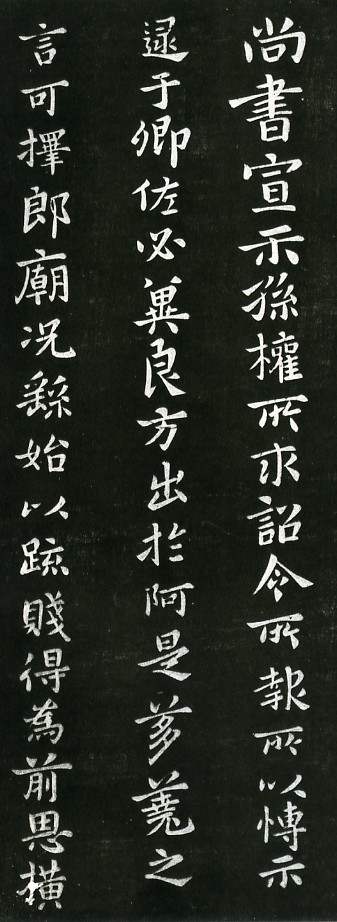 尚書宣示孫權所求詔令所報所以博示
逮于卿佐必冀良方出於阿是芻蕘之
言可擇郎廟况繇始以疏賤得為前恩橫